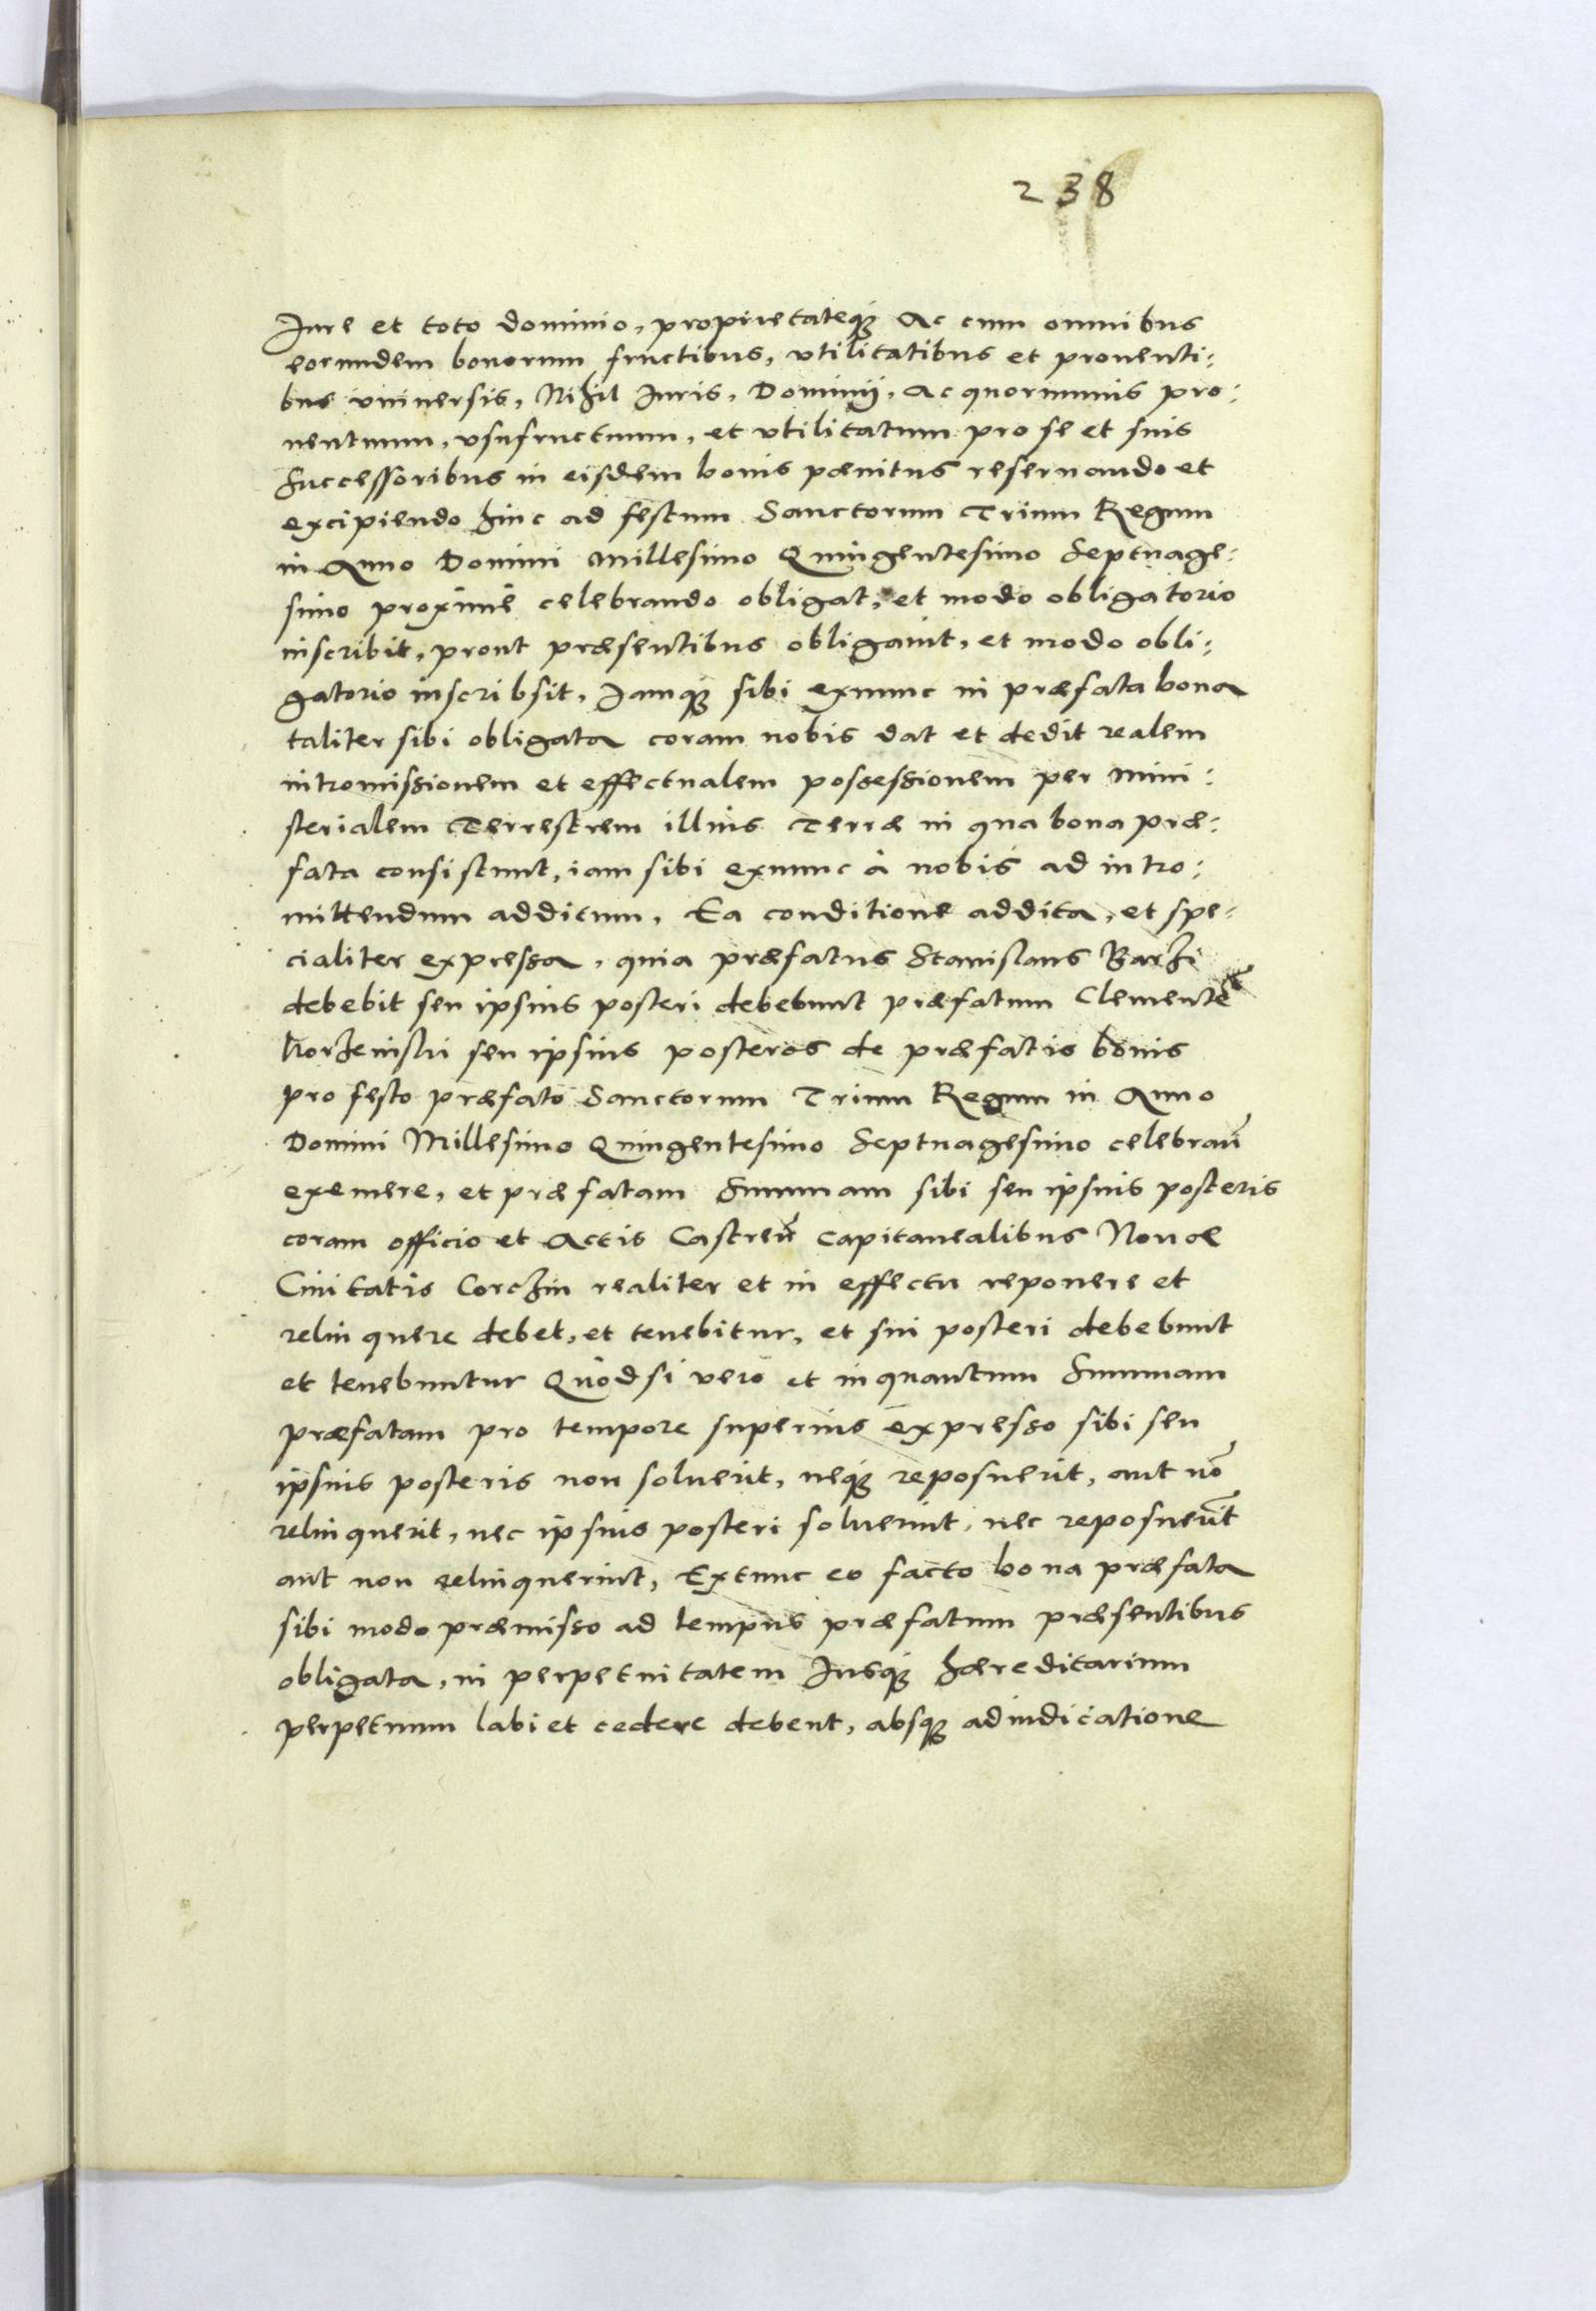 238
Jure et toto dominio, proprietateq₃ Ac cum omnibus
eorundem bonorum fructibus, vtilitatibus et prouenti:
bus vniuersis, Nihil Juris, Dominij, Ac quorumuis pro:
uentuum, vsufructuum, et vtilitatum pro se et suis
Successoribus in eisdem bonis pænitus reseruando et
excipiendo hinc ad festum Sanctorum Trium Regum
in Anno Domini Millesimo Quingentesimo Septuage:
simo proximè celebrando obligat, et modo obligatorio
inscribit, prout præsentibus obligauit, et modo obli:
gatorio inscribsit, Jamq₃ sibi exnunc in præfata bona
taliter sibi obligata coram nobis dat et dedit realem
intromissionem et effectualem possessionem per mini:
sterialem Terrestrem illius Terræ in qua bona præ:
fata consistunt, iam sibi exnunc à nobis ad intro:
mittendum additum, Ea conditione addita, et spe:
cialiter expressa, quia præfatus Stanislaus Barzi
debebit seu ipsius posteri debebunt præfatum Clementē
Korzeniski seu ipsius posteros de præfatis bonis
pro festo præfato Sanctorum Trium Regum in Anno
Domini Millesimo Quingentesimo Septuagesimo celebrañ
exemere, et præfatam Summam sibi seu ipsius posteris
coram officio et Actis Castreñ Capitanealibus Nouæ
Ciuitatis Corczin realiter et in effectu reponere et
relinquere debet, et tenebitur, et sui posteri debebunt
et tenebuntur Quòd si verò et in quantum Summam
præfatam pro tempore superius expresso sibi seu
ipsius posteris non soluerit, neq₃ reposuerit, aut nō
relinquerit, nec ipsius posteri soluerint, nec reposuerīt
aut non relinquerint, Extunc eo facto bona præfata
sibi modo præmisso ad tempus præfatum præsentibus
obligata, in perpetuitatem Jusq₃ hæreditarium
perpetuum labi et cedere debent, absq₃ adiudicatione